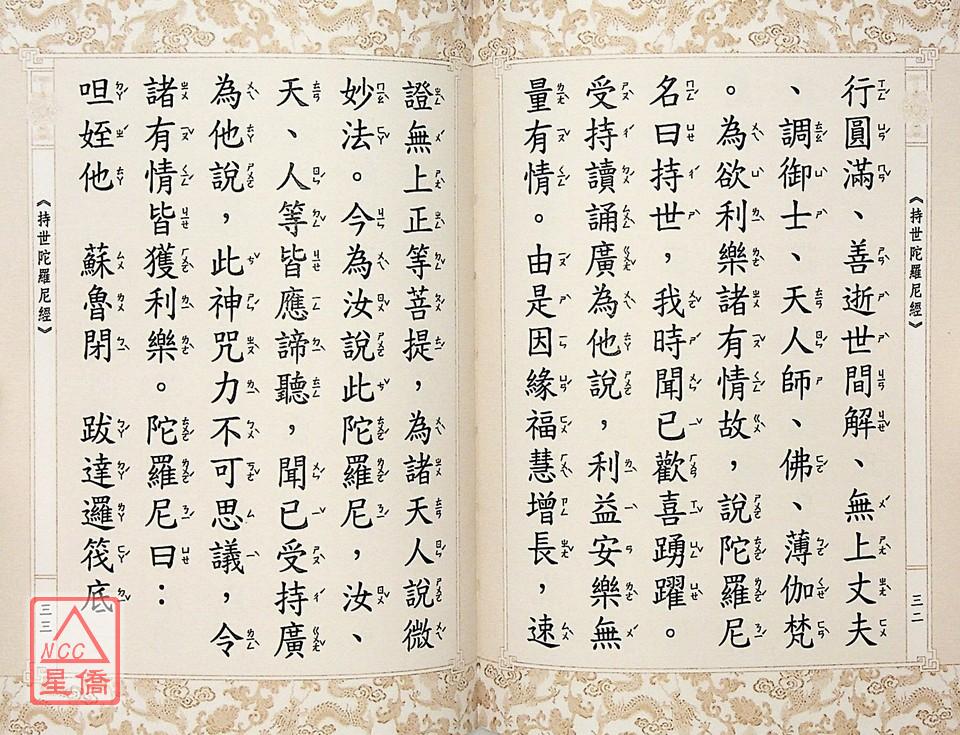 《持世陀羅尼經》
三二
行圓滿、善逝世間解、無上丈夫
、調御士、天人師、佛、薄伽梵
。為欲利樂諸有情故，說陀羅尼
名曰持世，我時聞已歡喜踴躍。
受持讀誦廣為他說，利益安樂無
量有情。由是因緣福慧增長，速
證無上正等菩提，為諸天人說微
妙法。今為汝說此陀羅尼，汝、
天、人等皆應諦聽，聞已受持廣
為他說，此神咒力不可思議，令
諸有情皆獲利樂。陀羅尼曰：
呾姪他　蘇魯閉　跋達邏筏底
《持世陀羅尼經》
三三
NCC
星僑